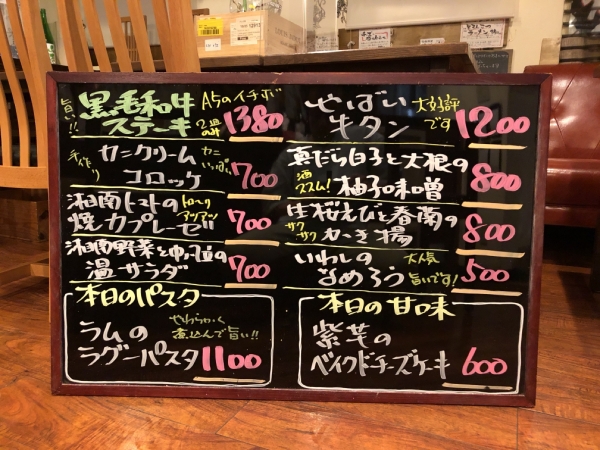 旨い!!
黒毛和牛
ステーキ
A5のイチボ
2皿のみ
1380
手作り
カニクリーム
コロッケ
カニいっぱい
700
湘南トマトの
焼カプレーゼ
とろ〜り
アツアツ
700
湘南野菜と
温サラダ
700
本日のパスタ
ラムの
ラグーパスタ
やわらかく
煮込んで旨い!!
1100
やばい
牛タン
大好評
です
1200
真だら白子と大根の
柚子味噌
酒
ススム!
800
生桜えびと春蘭の
かき揚
サク
サク
800
いわしの
なめろう
大人気
旨いです!
500
本日の甘味
紫芋の
ベイクドチーズケーキ
600